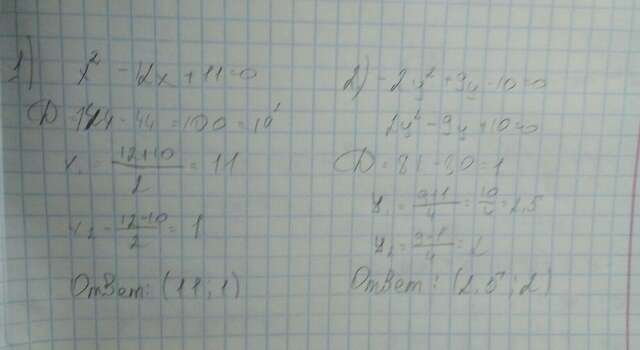 1) x² - 12x + 11 = 0
D = 144 - 44 = 100 = 10²
x₁ = (12+10)/2 = 11
x₂ = (12-10)/2 = 1
Ответ: (11; 1)
2) -2y² + 9y - 10 = 0
2y² - 9y + 10 = 0
D = 81 - 80 = 1
y₁ = (9+1)/4 = 10/4 = 2,5
y₂ = (9-1)/4 = 2
Ответ: (2,5; 2)